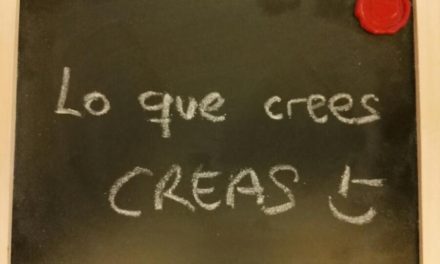 Lo que crees
CREAS